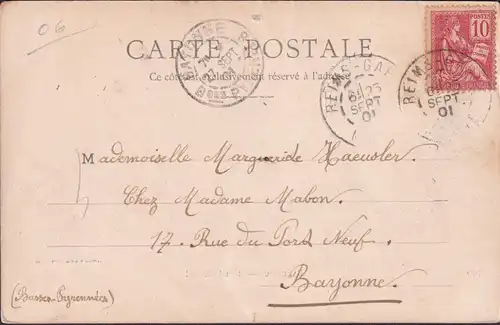 06
CARTE POSTALE
Ce côté est exclusivement réservé à l'adresse
POSTES
10
REIMS-GARE
25
SEPT
01
REIMS
SEPT
01
BAYONNE
SEPT
Mademoiselle Margueride Haeusler
Chez Madame Mabon.
17. Rue du Port Neuf.
Bayonne.
(Basses-Pyrennées)